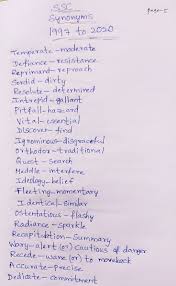 SSC
page-5
Synonyms
1997 to 2020
Temperate - moderate
Defiance - resistance
Reprimand - reproach
Sordid - dirty
Resolute - determined
Intrepid - gallant
Pitfall - hazard
Vital - essential
Discover - find
Ignominous - disgraceful
Orthodox - traditional
Quest - Search
Meddle - interfere
Ideology - belief
Fleeting - momentary
Identical - Similar
Ostentatious - flashy
Radiance - sparkle
Recapitulation - Summary
Wary - alert (or) Cautious of danger
Recede - wane (or) to moveback
Accurate - Precise
Dedicate - commitment